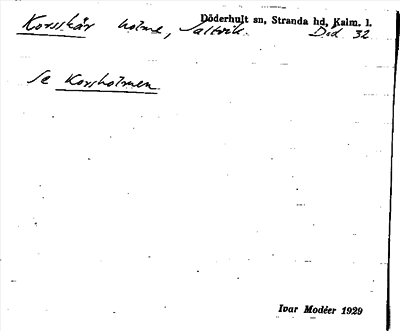 Döderhult sn, Stranda hd, Kalm. l.
Korsskär holme, Saltvik. Död 32
Se Korsholmen
Ivar Modéer 1929